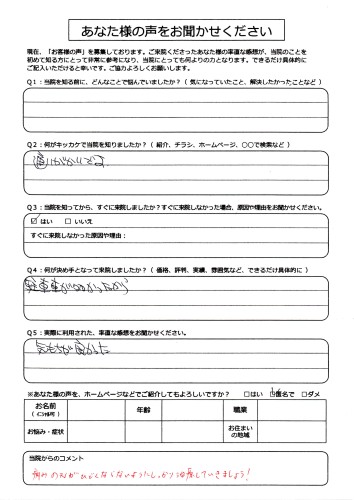 あなた様の声をお聞かせください
現在、「お客様の声」を募集しております。ご来院くださったあなた様の率直な感想が、当院のことを
初めて知る方にとって非常に参考になり、当院にとっても何よりの力となります。できるだけ具体的に
ご記入いただけると幸いです。ご協力よろしくお願いします。
Q1：当院を知る前に、どんなことで悩んでいましたか？（ 気になっていたこと、解決したかったことなど ）
Q2：何がキッカケで当院を知りましたか？（ 紹介、チラシ、ホームページ、○○で検索など ）
通りがかりです。
Q3：当院を知ってから、すぐに来院しましたか？すぐに来院しなかった場合、原因や理由をお聞かせください。
☑ はい □ いいえ
すぐに来院しなかった原因や理由：
Q4：何が決め手となって来院しましたか？（ 価格、評判、実績、雰囲気など、できるだけ具体的に ）
駐車車がひろかったから
Q5：実際に利用された、率直な感想をお聞かせください。
気もちが良かった
※あなた様の声を、ホームページなどでご紹介してもよろしいですか？ □はい ☑匿名で □ダメ
お名前
（ｲﾆｼｬﾙ可）
年齢
職業
お悩み・症状
お住まい
の地域
当院からのコメント
痛みがひどくならないようにしっかり治療していきましょう！